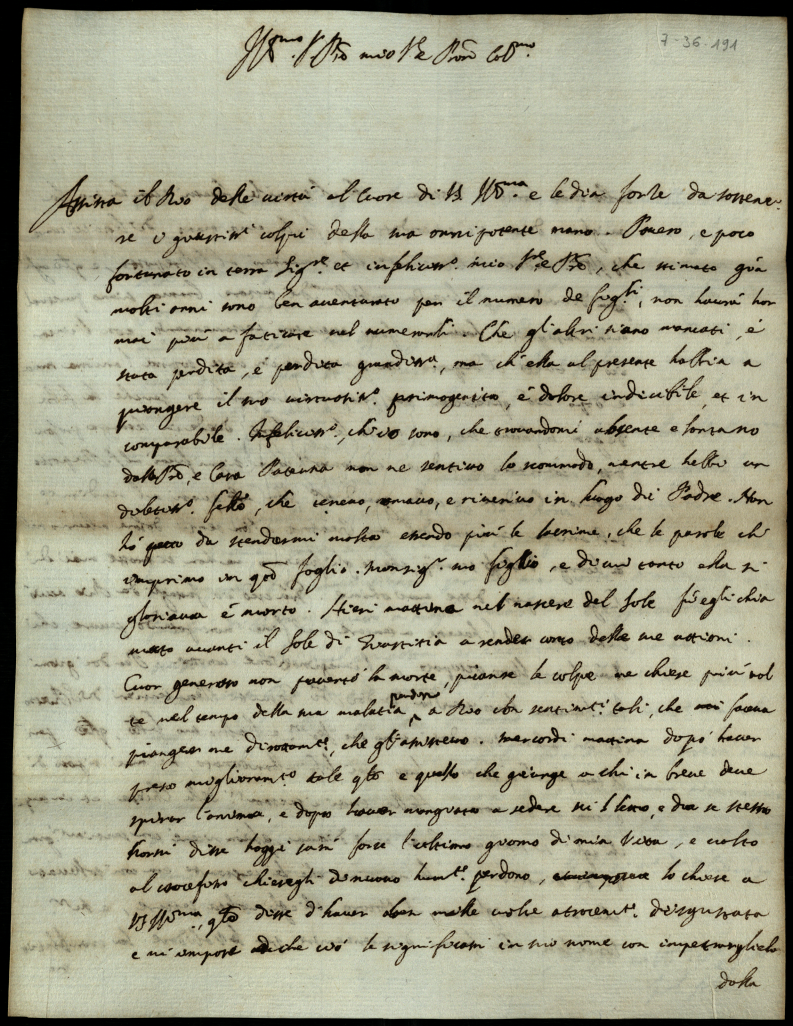 7-36-191
Ill.mo Sr. Pro. mio Sre Pron Col.mo
Assista il Dio delle virtù al Cuore di V.S. Ill.ma e le dia forze da sostene-
re i giustiss.i colpi della sua onnipotente mano. Povero, e poco
fortunato in terra Sig.re et infeliciss.o mio Sre Pro, che stimato già
molti anni sono ben aventurato per il numero de figli, non haurà hor
mai più a faticare nel numerarli. Che gl'altri siano mancati, è
stata perdita, e perdita grandiss.a, ma ch'ella al presente habbia a
piangere il suo virtuosiss.o primogenito, è dolore indicibile, et in
comparabile. Infeliciss.o, ch'io sono, che trovandomi absente e lontano
dalla Pria, e Casa Paterna non ne sentivo lo scommodo, mentre hebbi un
, che temevo, amavo, e riverivo in luogo di Padre. Non
hò da stendermi molto essendo più le lacrime, che le parole ch'
imprimo in q.to foglio. Monsig.r suo figlio, e di cui tanto ella si
gloriava è morto. Hieri mattina nel nascere del Sole fù egli chia
mato avanti il Sole di Giustitia a render conto delle sue attioni.
Cuor generoso non paventò la morte, pianse le colpe ne chiese più vol
te nel tempo della sua malatia perdono a Dio con sentim.ti tali, che faceva
pianger me dirottam.te, che gl'assistevo. Mercordì mattina dopò haver
preso miglioram.to tale q.to è quello che giunge a chi in breve deve
spirar l'anima, e dopo haver mangiato a sedere su'l letto, e da se stesso
disse hoggi sarà forse l'ultimo giorno di mia Vita, e volto
al crocefisso chiesegli di nuovo hum.te perdono, lo chiese a
V.S. Ill.ma, q.to disse d'haver ben mille volte atrocem.te disgustata
e m'impose che ciò le significassi in suo nome con impetrarglielo
dalla